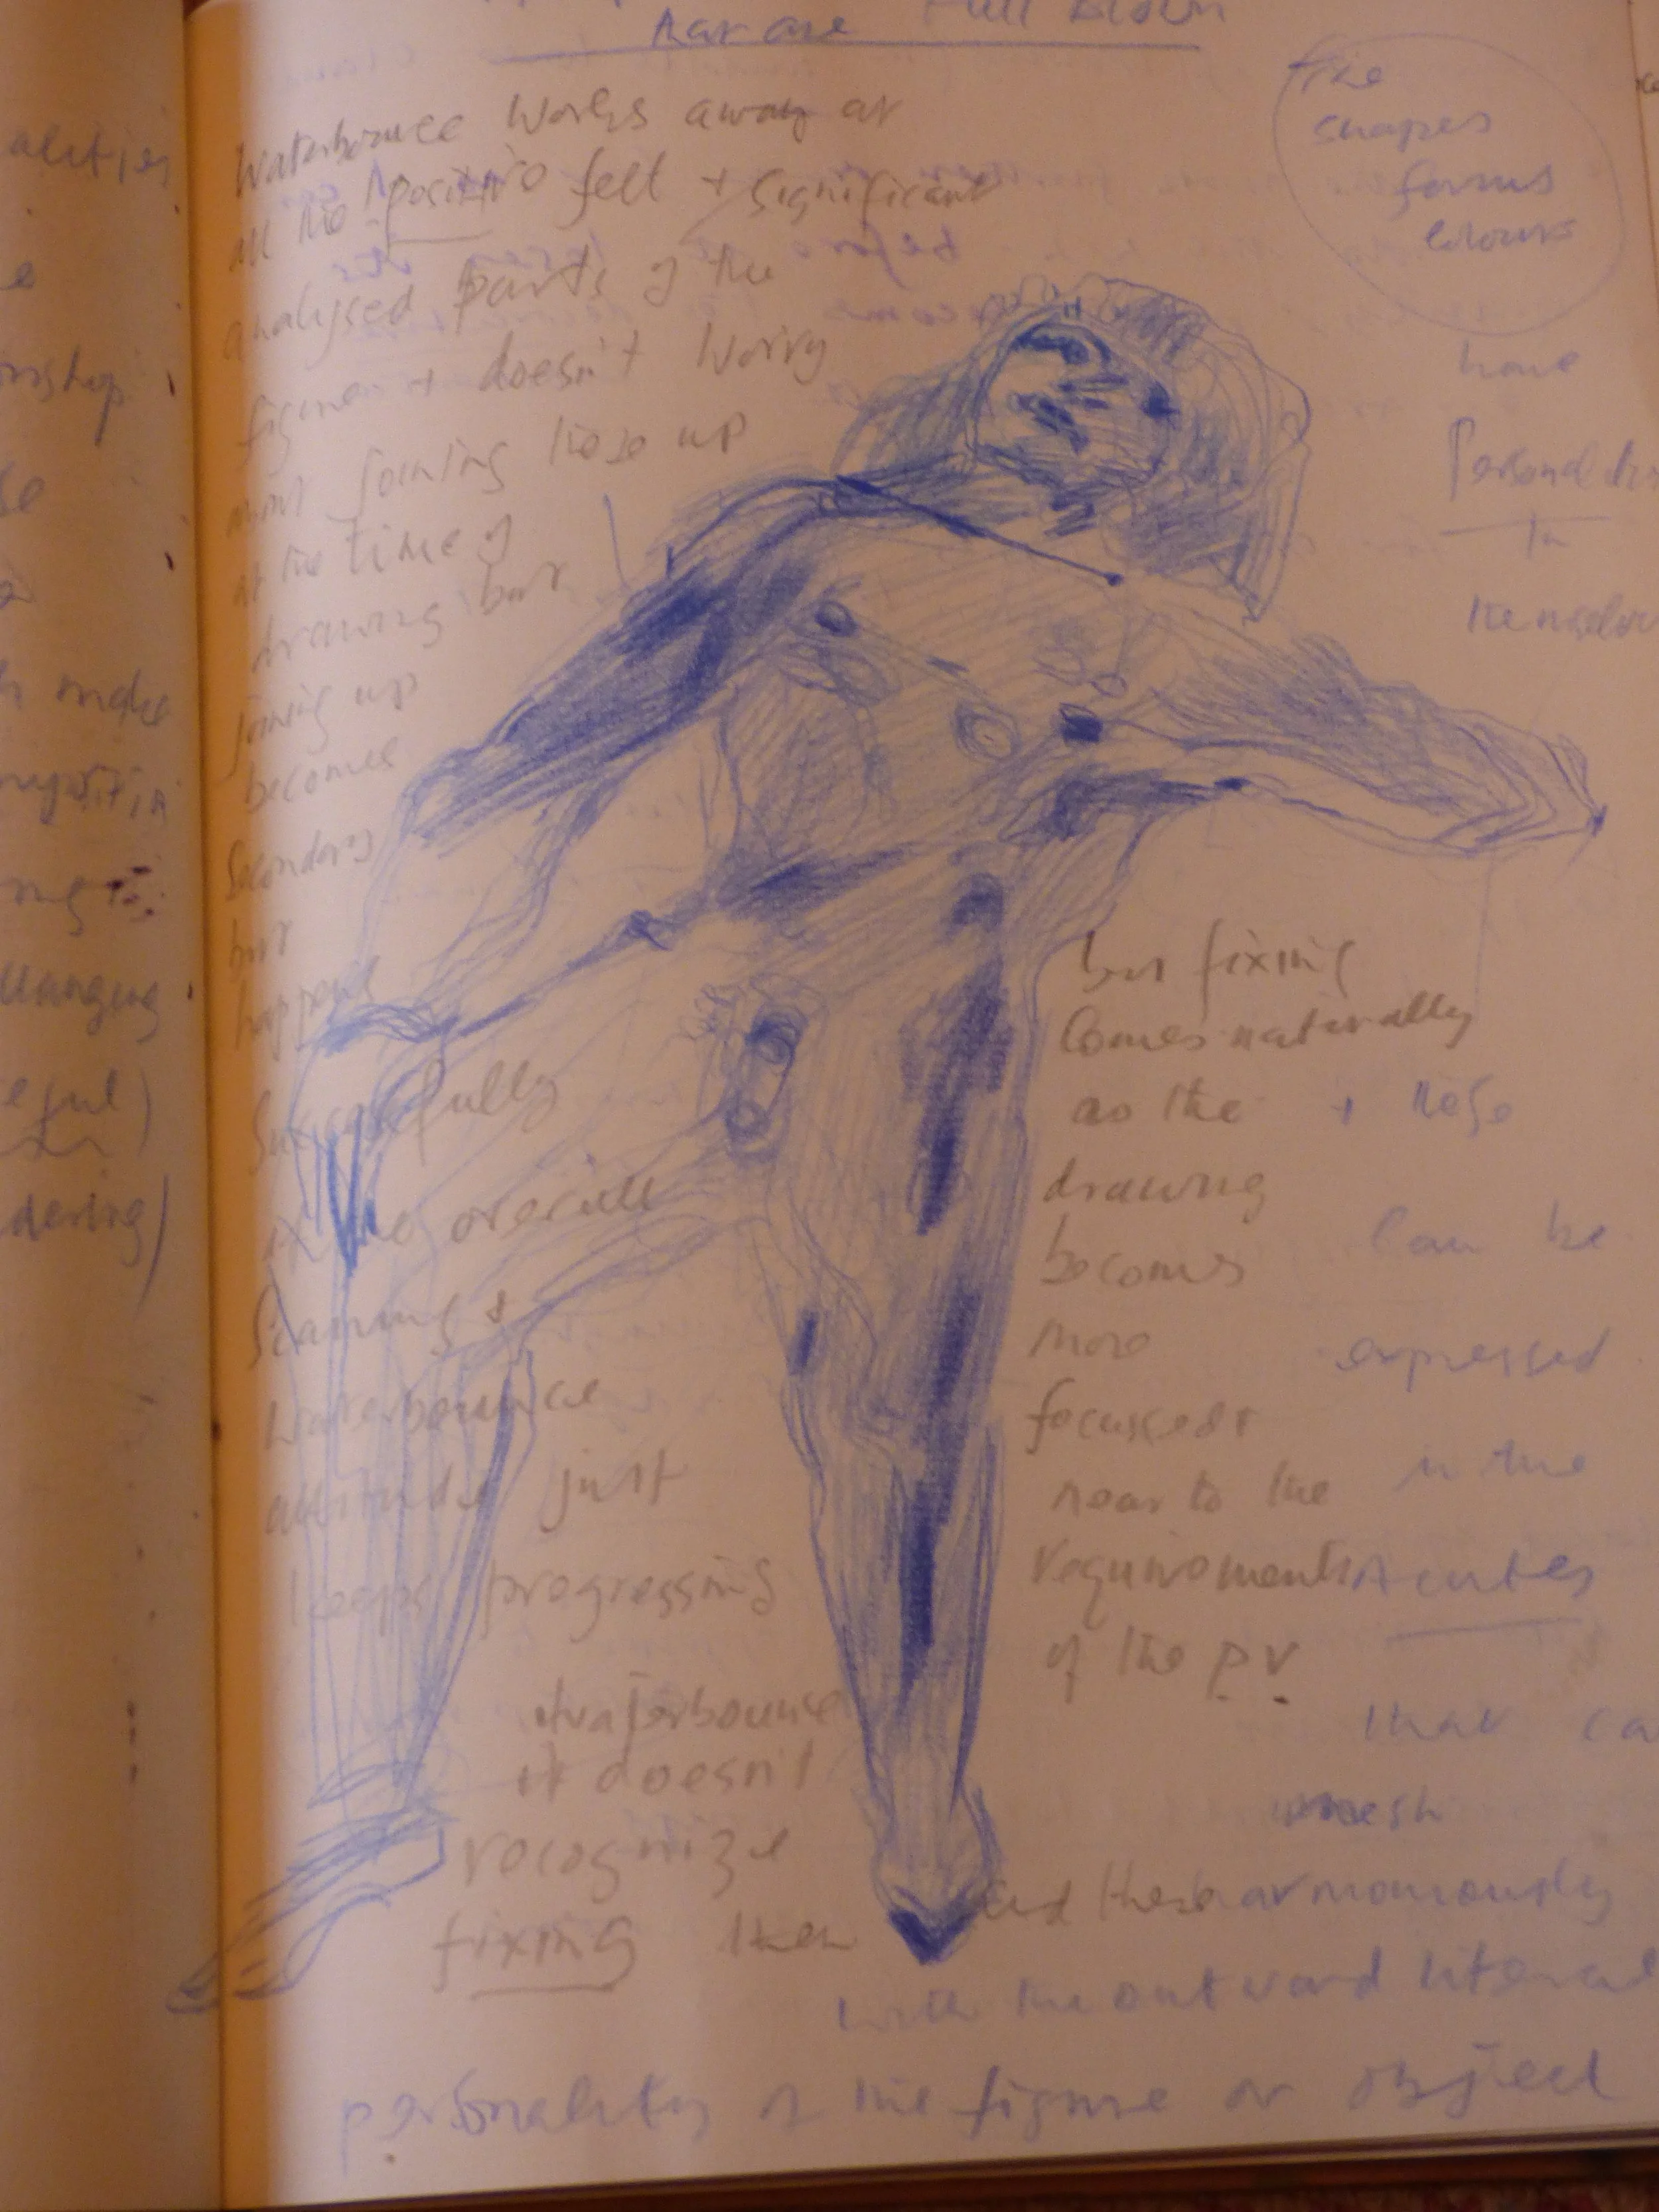 that are Full Blown
Waterbounce works away at
all the positive felt + significant
analysed parts of the
figure + doesn't worry
about joining these up
at the time of
drawing but
joining up
becomes
secondary
but
happens
successfully
as the overall
scanning +
waterbounce
attitude just
keeps progressing
waterbounce
it doesn't
recognize
fixing then
but fixing
comes naturally
as the
drawing
becomes
more
focussed +
near to the
requirements
of the p.v.
The
shapes
forms
colours
have
Personalities
in
themselves
+ these
can be
expressed
in the
Acutes
that ca
mesh
harmoniously
with the outward literal
personality of the figure or object
alities
e
onship
se
make
ng
eful)
dering)